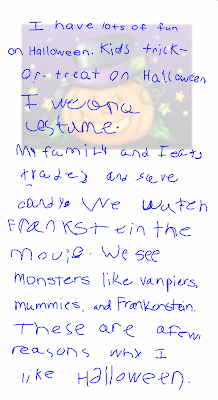 I have lots of fun
on Halloween. Kids trick-
or-treat on Halloween
I weara
costume.
My family and I eat,
trade, and save
candy. We watch
FRANKSTein the
movie. We see
monsters like vanpiers,
mummies, and Frankenstein.
These are a few
reasons why I
like Halloween.